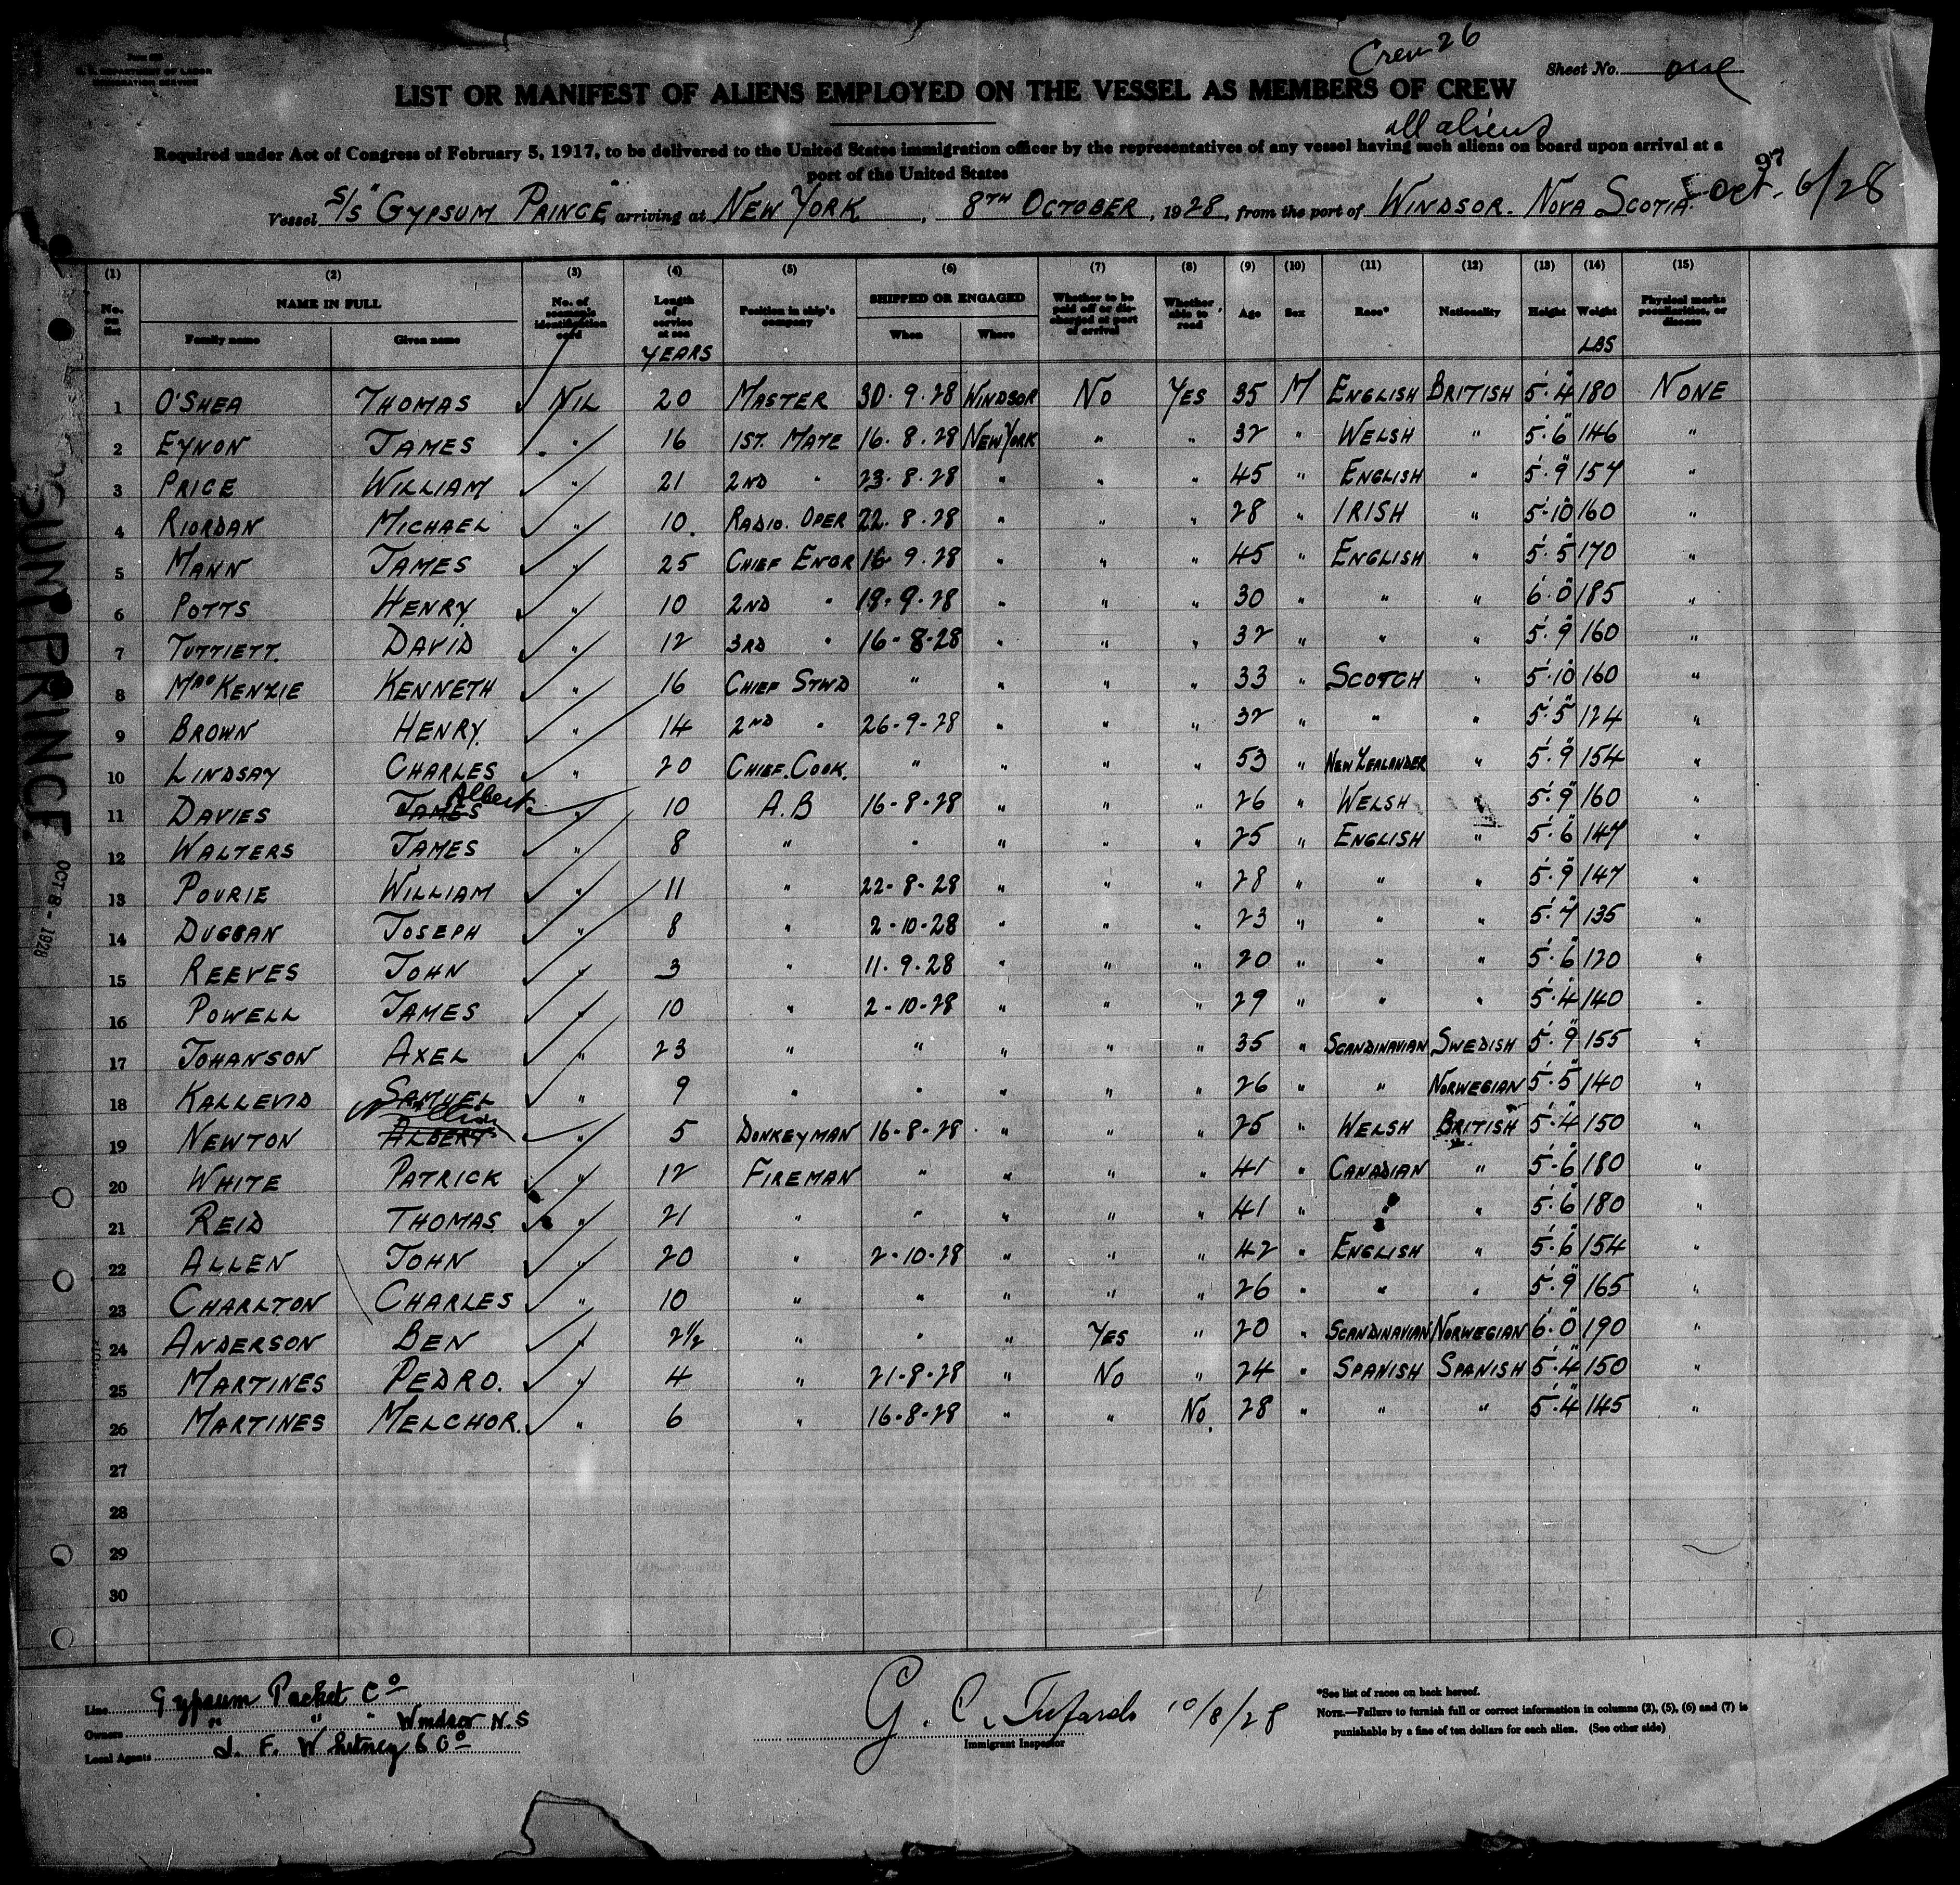 Crew 26
Sheet No. one
LIST OR MANIFEST OF ALIENS EMPLOYED ON THE VESSEL AS MEMBERS OF CREW
all aliens
Required under Act of Congress of February 5, 1917, to be delivered to the United States immigration officer by the representatives of any vessel having such aliens on board upon arrival at a
port of the United States
97
Vessel S/S "GYPSUM PRINCE" arriving at NEW YORK, 8TH OCTOBER, 1928, from the port of WINDSOR. NOVA SCOTIA. Oct. 6/28
(1) (2) (3) (4) (5) (6) (7) (8) (9) (10) (11) (12) (13) (14) (15)
No. on list NAME IN FULL Family name Given name No. of seaman's identification card Length of service at sea YEARS Position in ship's company SHIPPED OR ENGAGED When Where Whether to be paid off or discharged at port of arrival Whether able to read Age Sex Race* Nationality Height Weight LBS Physical marks peculiarities, or disease
1 O'SHEA THOMAS NIL 20 MASTER 30.9.28 WINDSOR NO YES 35 M ENGLISH BRITISH 5'.4" 180 NONE
2 EYNON JAMES " 16 1ST. MATE 16.8.28 NEW YORK " " 32 " WELSH " 5'.6" 146 "
3 PRICE WILLIAM " 21 2ND " 23.8.28 " " " 45 " ENGLISH " 5'.9" 157 "
4 RIORDAN MICHAEL " 10. RADIO. OPER 22.8.28 " " " 28 " IRISH " 5'.10" 160 "
5 MANN JAMES " 25 CHIEF ENGR 16.9.28 " " " 45 " ENGLISH " 5'.5" 170 "
6 POTTS HENRY " 10 2ND " 19.9.28 " " " 30 " " " 6'.0" 185 "
7 TUTTIETT. DAVID " 12 3RD " 16-8-28 " " " 32 " " " 5'.9" 160 "
8 MacKENZIE KENNETH " 16 CHIEF STWD " " " " 33 " SCOTCH " 5'.10" 160 "
9 BROWN HENRY. " 14 2ND " 26-9-28 " " " 32 " " " 5'.5" 124 "
10 LINDSAY CHARLES " 20 CHIEF. COOK. " " " " 53 " NEW ZEALANDER " 5'.9" 154 "
11 DAVIES JAMES Albert " 10 A.B 16-8-28 " " " 26 " WELSH " 5'.9" 160 "
12 WALTERS JAMES " 8 " " " " " 25 " ENGLISH " 5'.6" 147 "
13 POURIE WILLIAM " 11 " 22-8-28 " " " 28 " " " 5'.9" 147 "
14 DUGGAN JOSEPH " 8 " 2-10-28 " " " 23 " " " 5'.7" 135 "
15 REEVES JOHN " 3 " 11.9.28 " " " 20 " " " 5'.6" 120 "
16 POWELL JAMES " 10 " 2-10-28 " " " 29 " " " 5'.4" 140 "
17 JOHANSON AXEL " 23 " " " " " 35 " SCANDINAVIAN SWEDISH 5'.9" 155 "
18 KALLEVID SAMUEL " 9 " " " " " 26 " " NORWEGIAN 5'.5" 140 "
19 NEWTON ALBERT " 5 DONKEYMAN 16-8-28 " " " 25 " WELSH BRITISH 5'.4" 150 "
20 WHITE PATRICK " 12 FIREMAN " " " " 41 " CANADIAN " 5'.6" 180 "
21 REID THOMAS " 21 " " " " " 41 " " " 5'.6" 180 "
22 ALLEN JOHN " 20 " 2-10-28 " " " 42 " ENGLISH " 5'.6" 154 "
23 CHARLTON CHARLES " 10 " " " " " 26 " " " 5'.9" 165 "
24 ANDERSON BEN " 2½ " " " YES " 20 " SCANDINAVIAN NORWEGIAN 6'.0" 190 "
25 MARTINES PEDRO. " 4 " 21-8-28 " NO " 24 " SPANISH SPANISH 5'.4" 150 "
26 MARTINES MELCHOR. " 6 " 16-8-28 " " NO. 28 " " " 5'.4" 145 "
27
28
29
30
SUM PRINCE
OCT 8 - 1928
Line Gypsum Packet Co
Owners " " " Windsor N.S
Local Agents J. F. Whitney & Co
G. C. 10/8/28
Immigrant Inspector
*See list of races on back hereof.
NOTE.—Failure to furnish full or correct information in columns (2), (5), (6) and (7) is
punishable by a fine of ten dollars for each alien. (See other side)